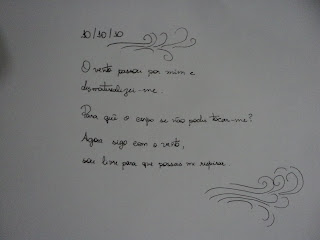 10/10/10
O vento passou por mim e
desmaterializei-me.
Para quê o corpo se não podes tocar-me?
Agora sigo com o vento,
sou livre para que possas me respirar.